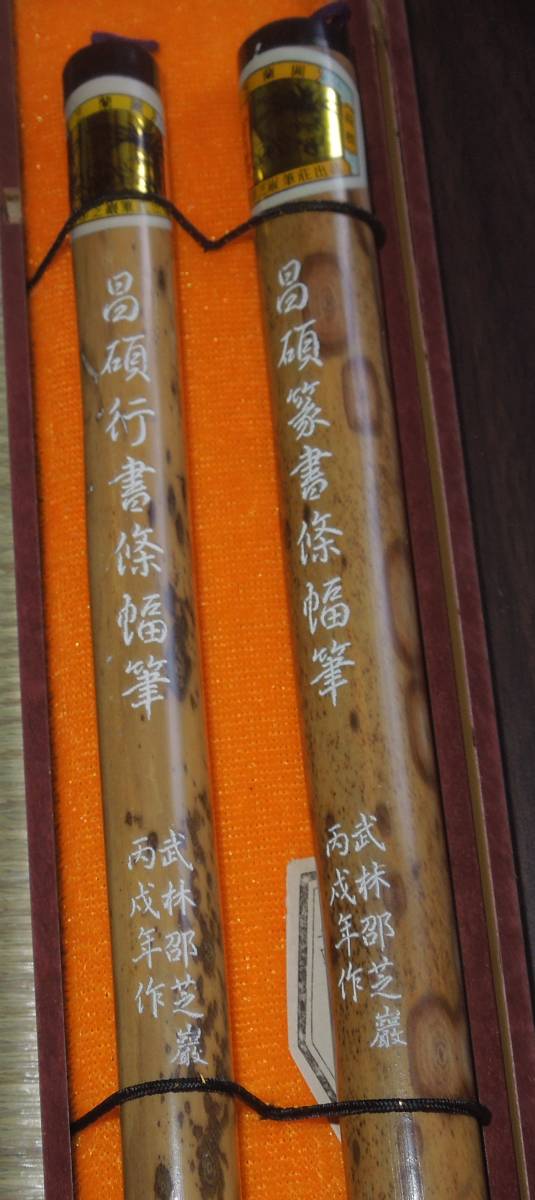 昌碩行書條幅筆
武林邵芝巖
丙戌年作
昌碩篆書條幅筆
武林邵芝巖
丙戌年作